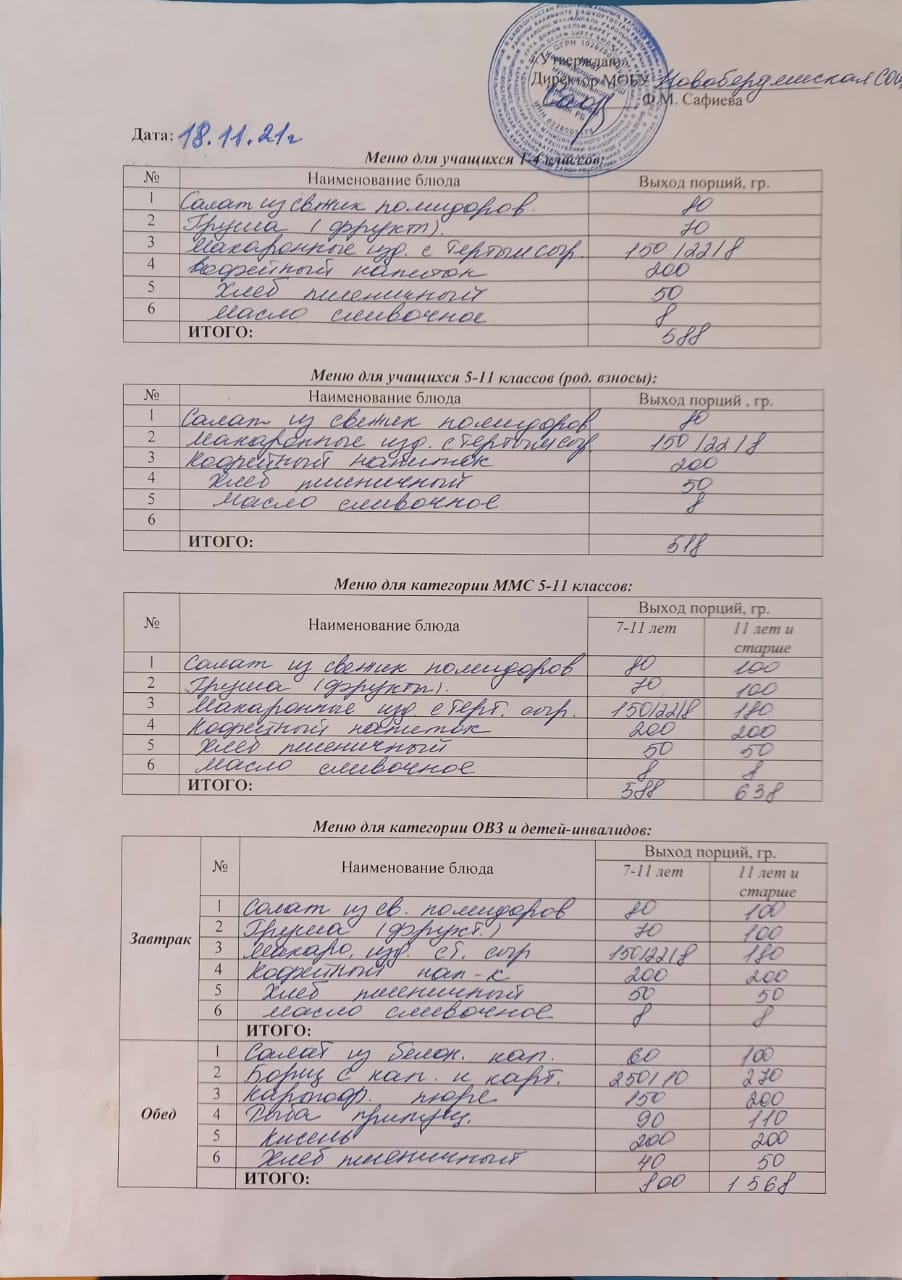 «Утверждаю»
Директор МОБУ Новобердяшская СОШ
Ф.М. Сафиева
Дата: 18.11.21г
Меню для учащихся 1-4 классов:
№ Наименование блюда Выход порций, гр.
1 Салат из свежих помидоров. 80
2 Груша (фрукт). 70
3 Макаронные изд. с тертым сыр. 150/22/8
4 Кофейный напиток 200
5 Хлеб пшеничный 50
6 Масло сливочное 8
ИТОГО: 588
Меню для учащихся 5-11 классов (род. взносы):
№ Наименование блюда Выход порций , гр.
1 Салат из свежих помидоров 80
2 Макаронные изд. с тертым сыр. 150/22/8
3 Кофейный напиток 200
4 Хлеб пшеничный 50
5 Масло сливочное 8
6
ИТОГО: 518
Меню для категории ММС 5-11 классов:
№ Наименование блюда Выход порций, гр.
7-11 лет 11 лет и старше
1 Салат из свежих помидоров 80 100
2 Груша (фрукты). 70 100
3 Макаронные изд. с терт. сыр. 150/22/8 180
4 Кофейный напиток 200 200
5 Хлеб пшеничный 50 50
6 Масло сливочное 8 8
ИТОГО: 588 638
Меню для категории ОВЗ и детей-инвалидов:
№ Наименование блюда Выход порций, гр.
7-11 лет 11 лет и старше
Завтрак
1 Салат из св. помидоров 80 100
2 Груша (фрукт.) 70 100
3 Макаро. изд. с т. сыр 150/22/8 180
4 Кофейный нап-к 200 200
5 Хлеб пшеничный 50 50
6 Масло сливочное 8 8
ИТОГО:
Обед
1 Салат из белок. кап. 60 100
2 Борщ с кап. и карт. 250/10 270
3 Картоф. пюре 150 200
4 Рыба припущ. 90 110
5 Кисель 200 200
6 Хлеб пшеничный 40 50
ИТОГО: 800 1568